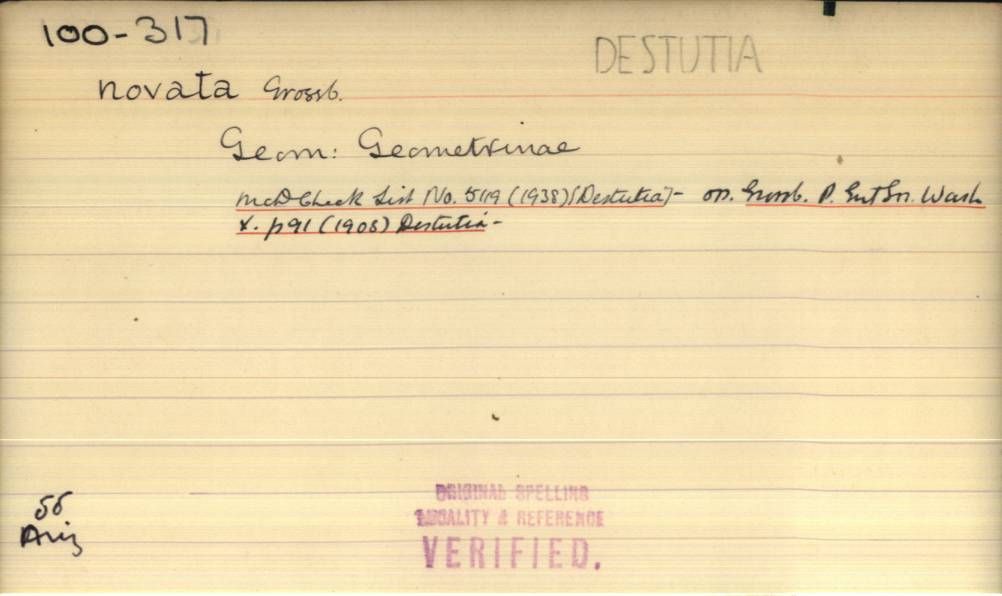 100-317
DESTUTIA
novata Grossb.
Geom: Geometrinae
McD Check List No. 5119 (1938) (Destutia) - on. Grossb. P. Ent Sn. Wash
X. p91 (1908) Destutia -
56
Ariz
ORIGINAL SPELLING
LOCALITY & REFERENCE
VERIFIED.